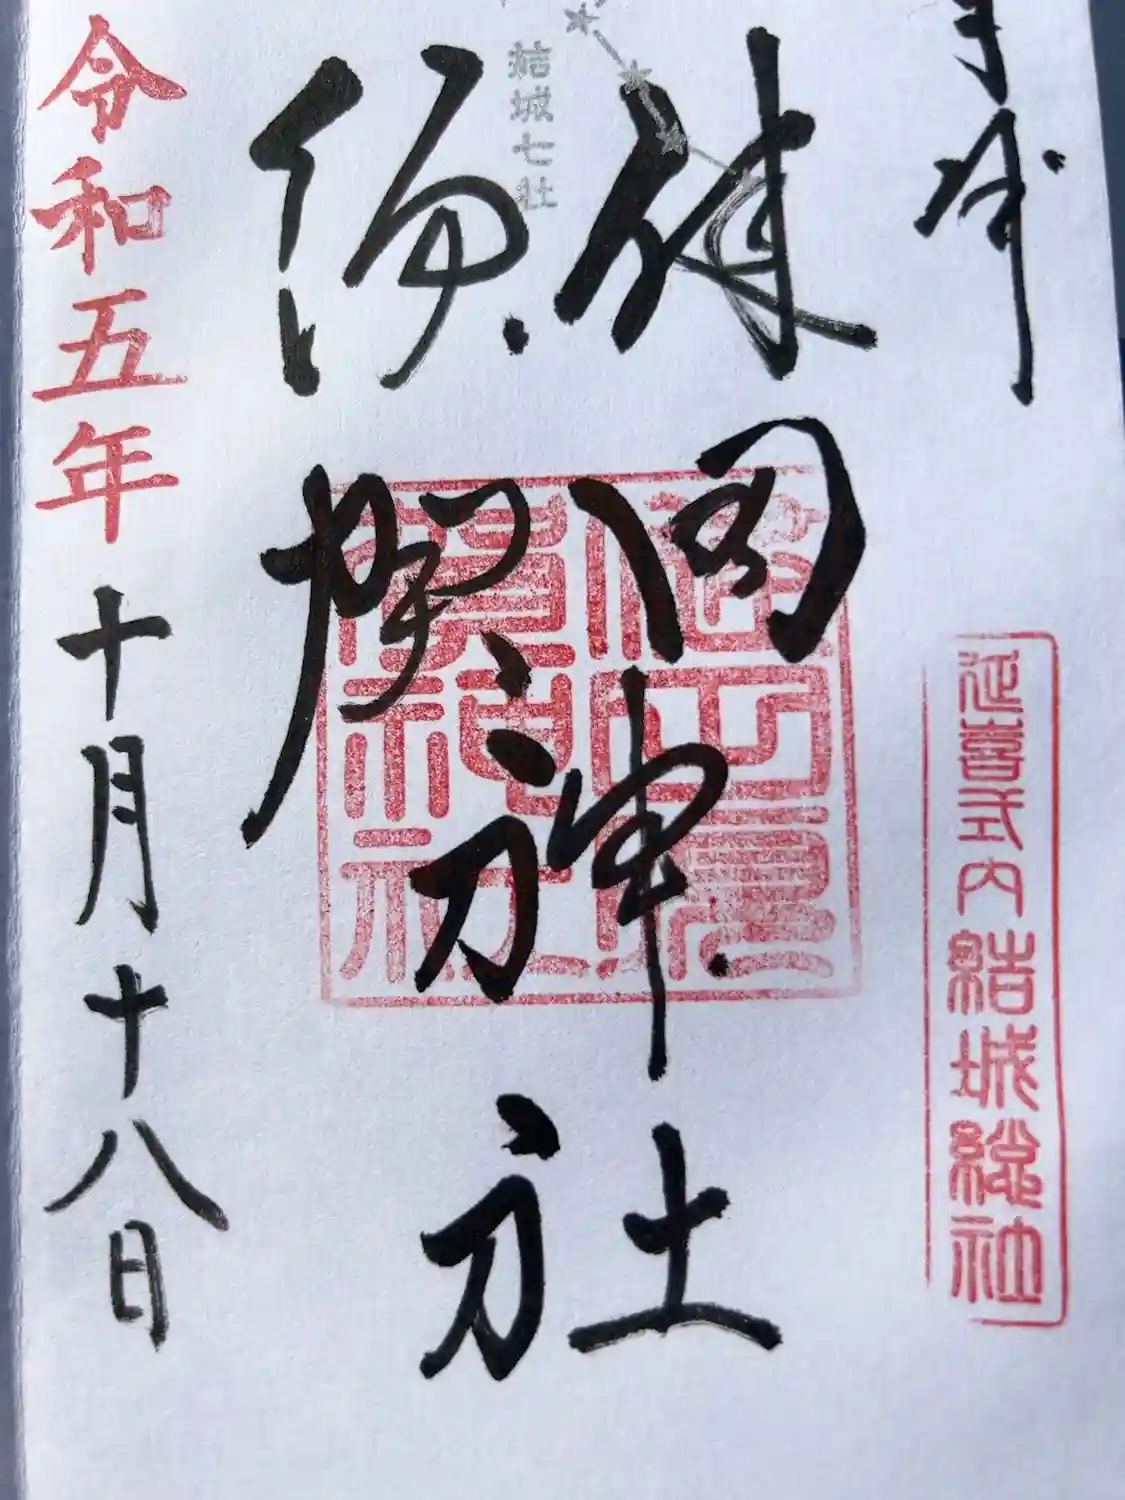 奉拝
延喜式内結城總社
結城七社
健田
須賀
神社
健田須賀神社
令和五年十月十八日